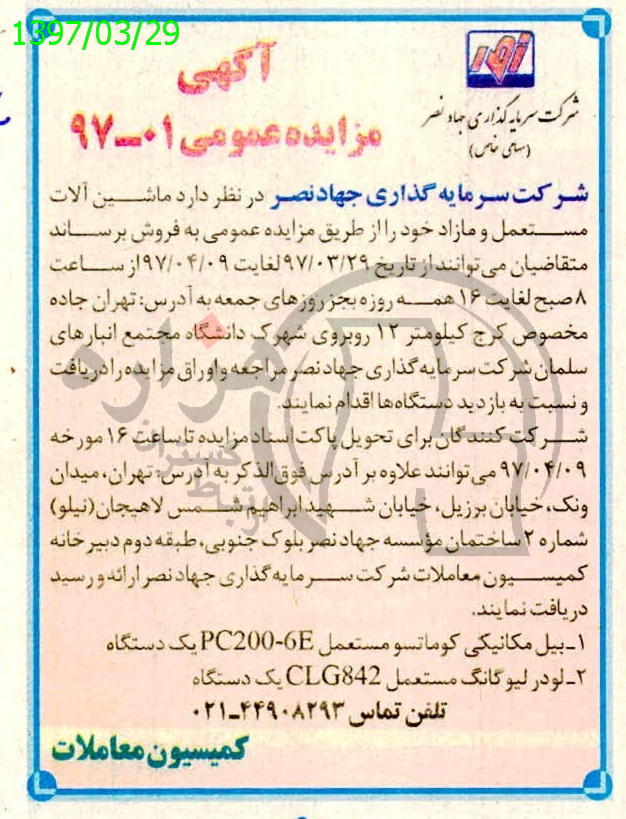 1397/03/29
آگهی
مزایده عمومی ۰۱-۹۷
شرکت سرمایه گذاری جهاد نصر
(سهامی خاص)
شرکت سرمایه گذاری جهاد نصر در نظر دارد ماشین آلات
مستعمل و مازاد خود را از طریق مزایده عمومی به فروش برساند
متقاضیان می توانند از تاریخ ۹۷/۰۳/۲۹ لغایت ۹۷/۰۴/۰۹ از ساعت
۸ صبح لغایت ۱۶ همه روزه بجز روزهای جمعه به آدرس: تهران جاده
مخصوص کرج کیلومتر ۱۲ روبروی شهرک دانشگاه مجتمع انبارهای
سلمان شرکت سرمایه گذاری جهاد نصر مراجعه و اوراق مزایده را دریافت
و نسبت به بازدید دستگاه‌ها اقدام نمایند.
شرکت کنندگان برای تحویل پاکت اسناد مزایده تا ساعت ۱۶ مورخه
۹۷/۰۴/۰۹ می توانند علاوه بر آدرس فوق الذکر به آدرس: تهران، میدان
ونک، خیابان برزیل، خیابان شهید ابراهیم شمس لاهیجان (نیلو)
شماره ۲ ساختمان مؤسسه جهاد نصر بلوک جنوبی، طبقه دوم دبیرخانه
کمیسیون معاملات شرکت سرمایه گذاری جهاد نصر ارائه و رسید
دریافت نمایند.
۱- بیل مکانیکی کوماتسو مستعمل PC200-6E یک دستگاه
۲- لودر لیوگانگ مستعمل CLG842 یک دستگاه
تلفن تماس ۴۴۹۰۸۲۹۳-۰۲۱
کمیسیون معاملات
هزاره
گستران
ارتباط